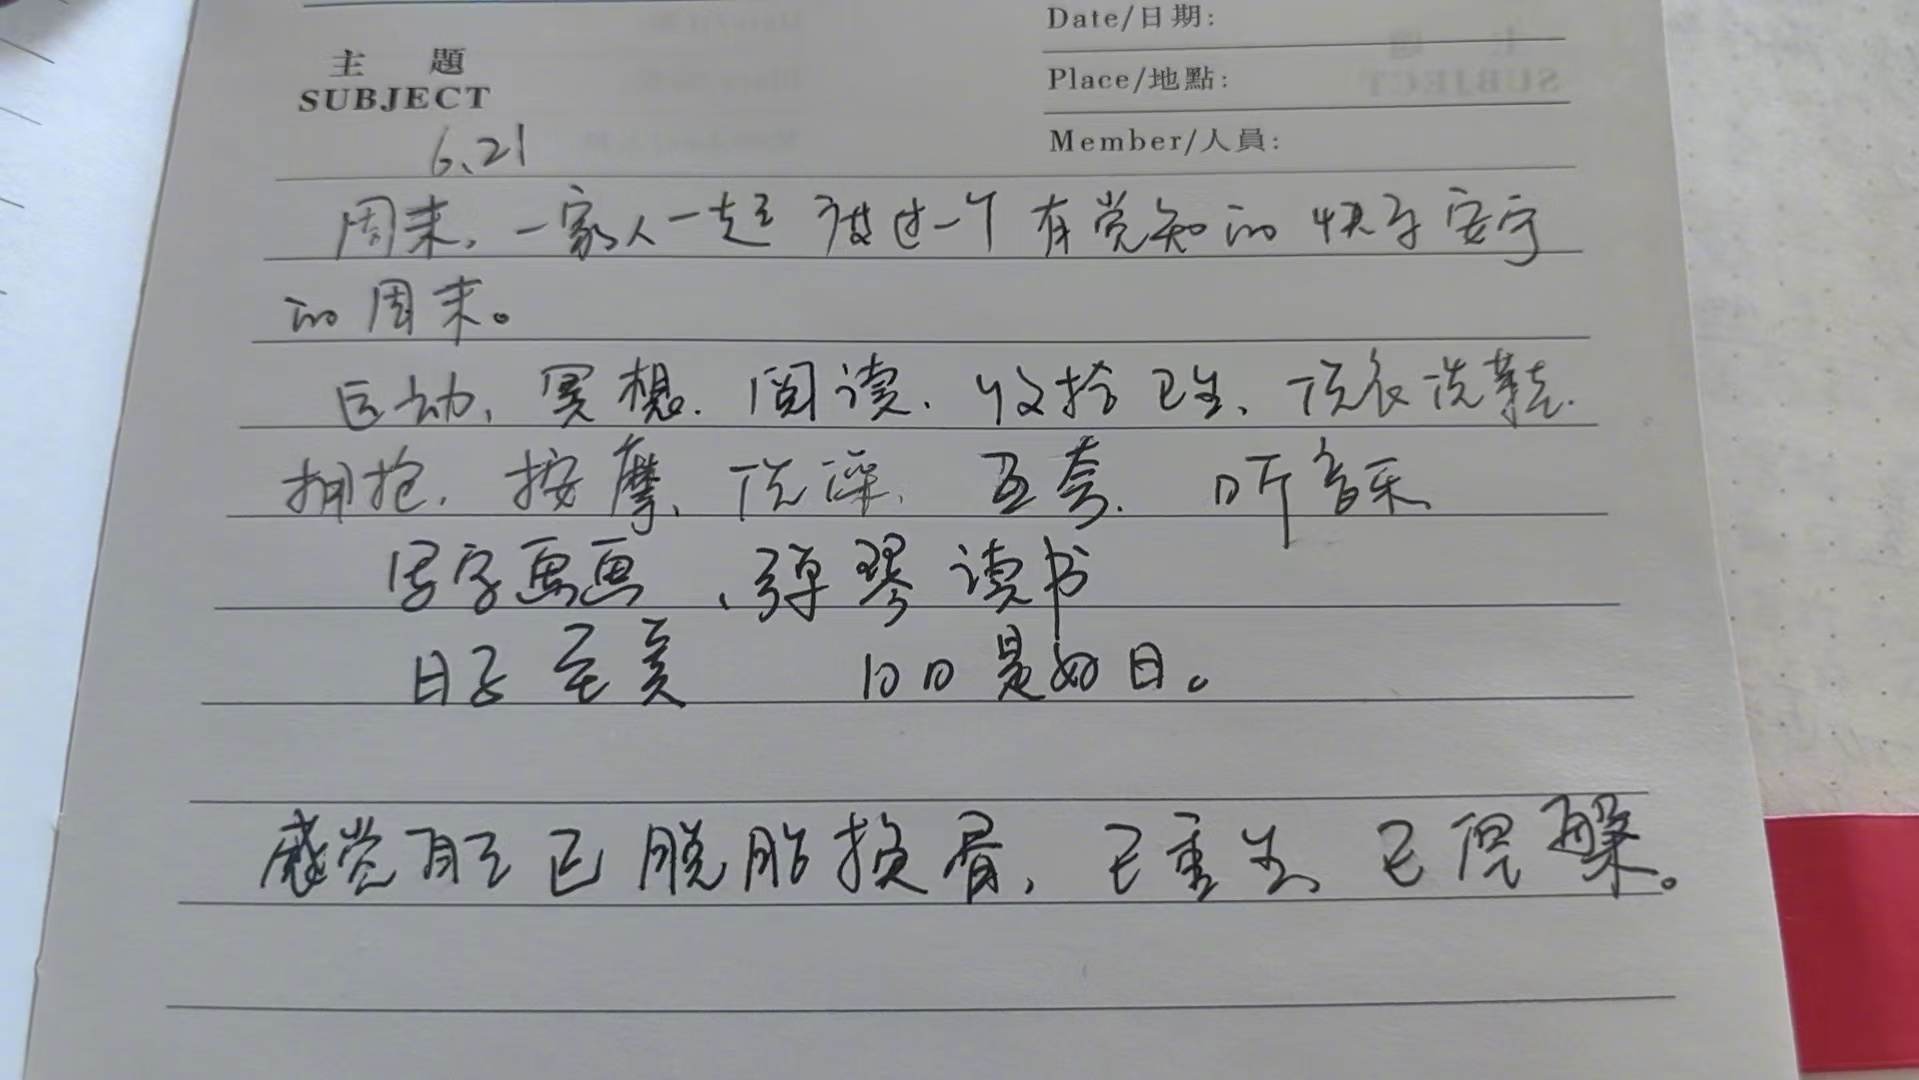 主 題
SUBJECT
Date/日期:
Place/地點:
Member/人員:
6.21
周末,一家人一起度过一个有觉知的快乐安宁
的周末。
运动、冥想、阅读、收拾卫生、洗衣洗鞋、
拥抱、按摩、洗澡、互夸、听音乐
写字画画、弹琴读书
日子至美 日日是好日。
感觉自己已脱胎换骨,已重生、已涅槃。